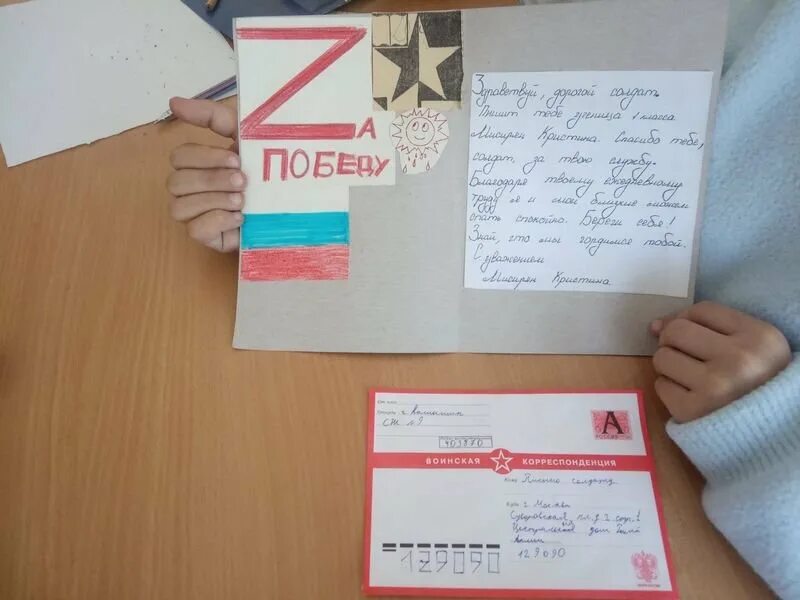 Zа
ПОБЕДУ
Здравствуй, дорогой солдат.
Пишет тебе ученица 1 класса
Мисирен Кристина. Спасибо тебе,
солдат, за твою службу.
Благодаря твоему ежедневному
труду я и мои близкие можем
спать спокойно. Береги себя!
Знай, что мы гордимся тобой.
С уважением
Мисирен Кристина.
г. Камышин
СШ №9
403870
А
РОССИЯ
ВОИНСКАЯ КОРРЕСПОНДЕНЦИЯ
Кому Письмо солдату
Куда г. Москва
Суворовская пл. д. 2 стр. 1
Центральный дом
129090
129090